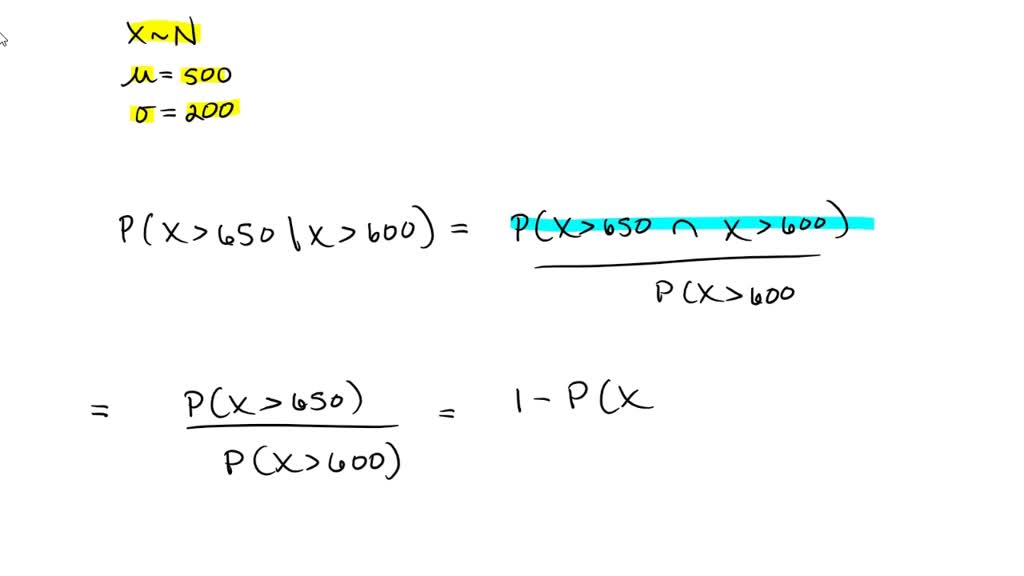 X ~ N
μ = 500
σ = 200
P(X > 650 \ X > 600) = P(X > 650 ∩ X > 600)
P(X > 600
= P(X > 650) = 1 - P(X
P(X > 600)